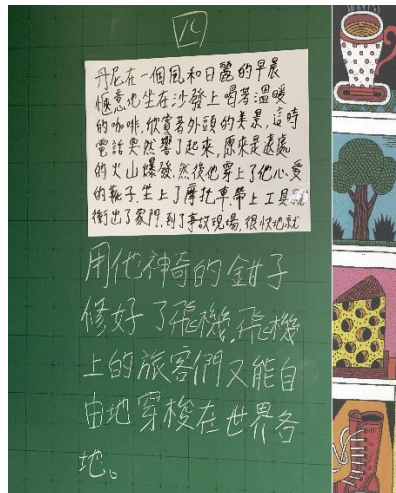 丹尼在一個風和日麗的早晨
愜意地坐在沙發上喝著溫暖
的咖啡,欣賞著外頭的美景,這時
電話突然響了起來,原來是遠處
的火山爆發,然後他穿上了他心愛
的靴子,坐上了摩托車,帶上工具就
衝出了家門,到了事故現場,很快地就
用他神奇的鉗子
修好了飛機,飛機
上的旅客們又能自
由地穿梭在世界各
地。